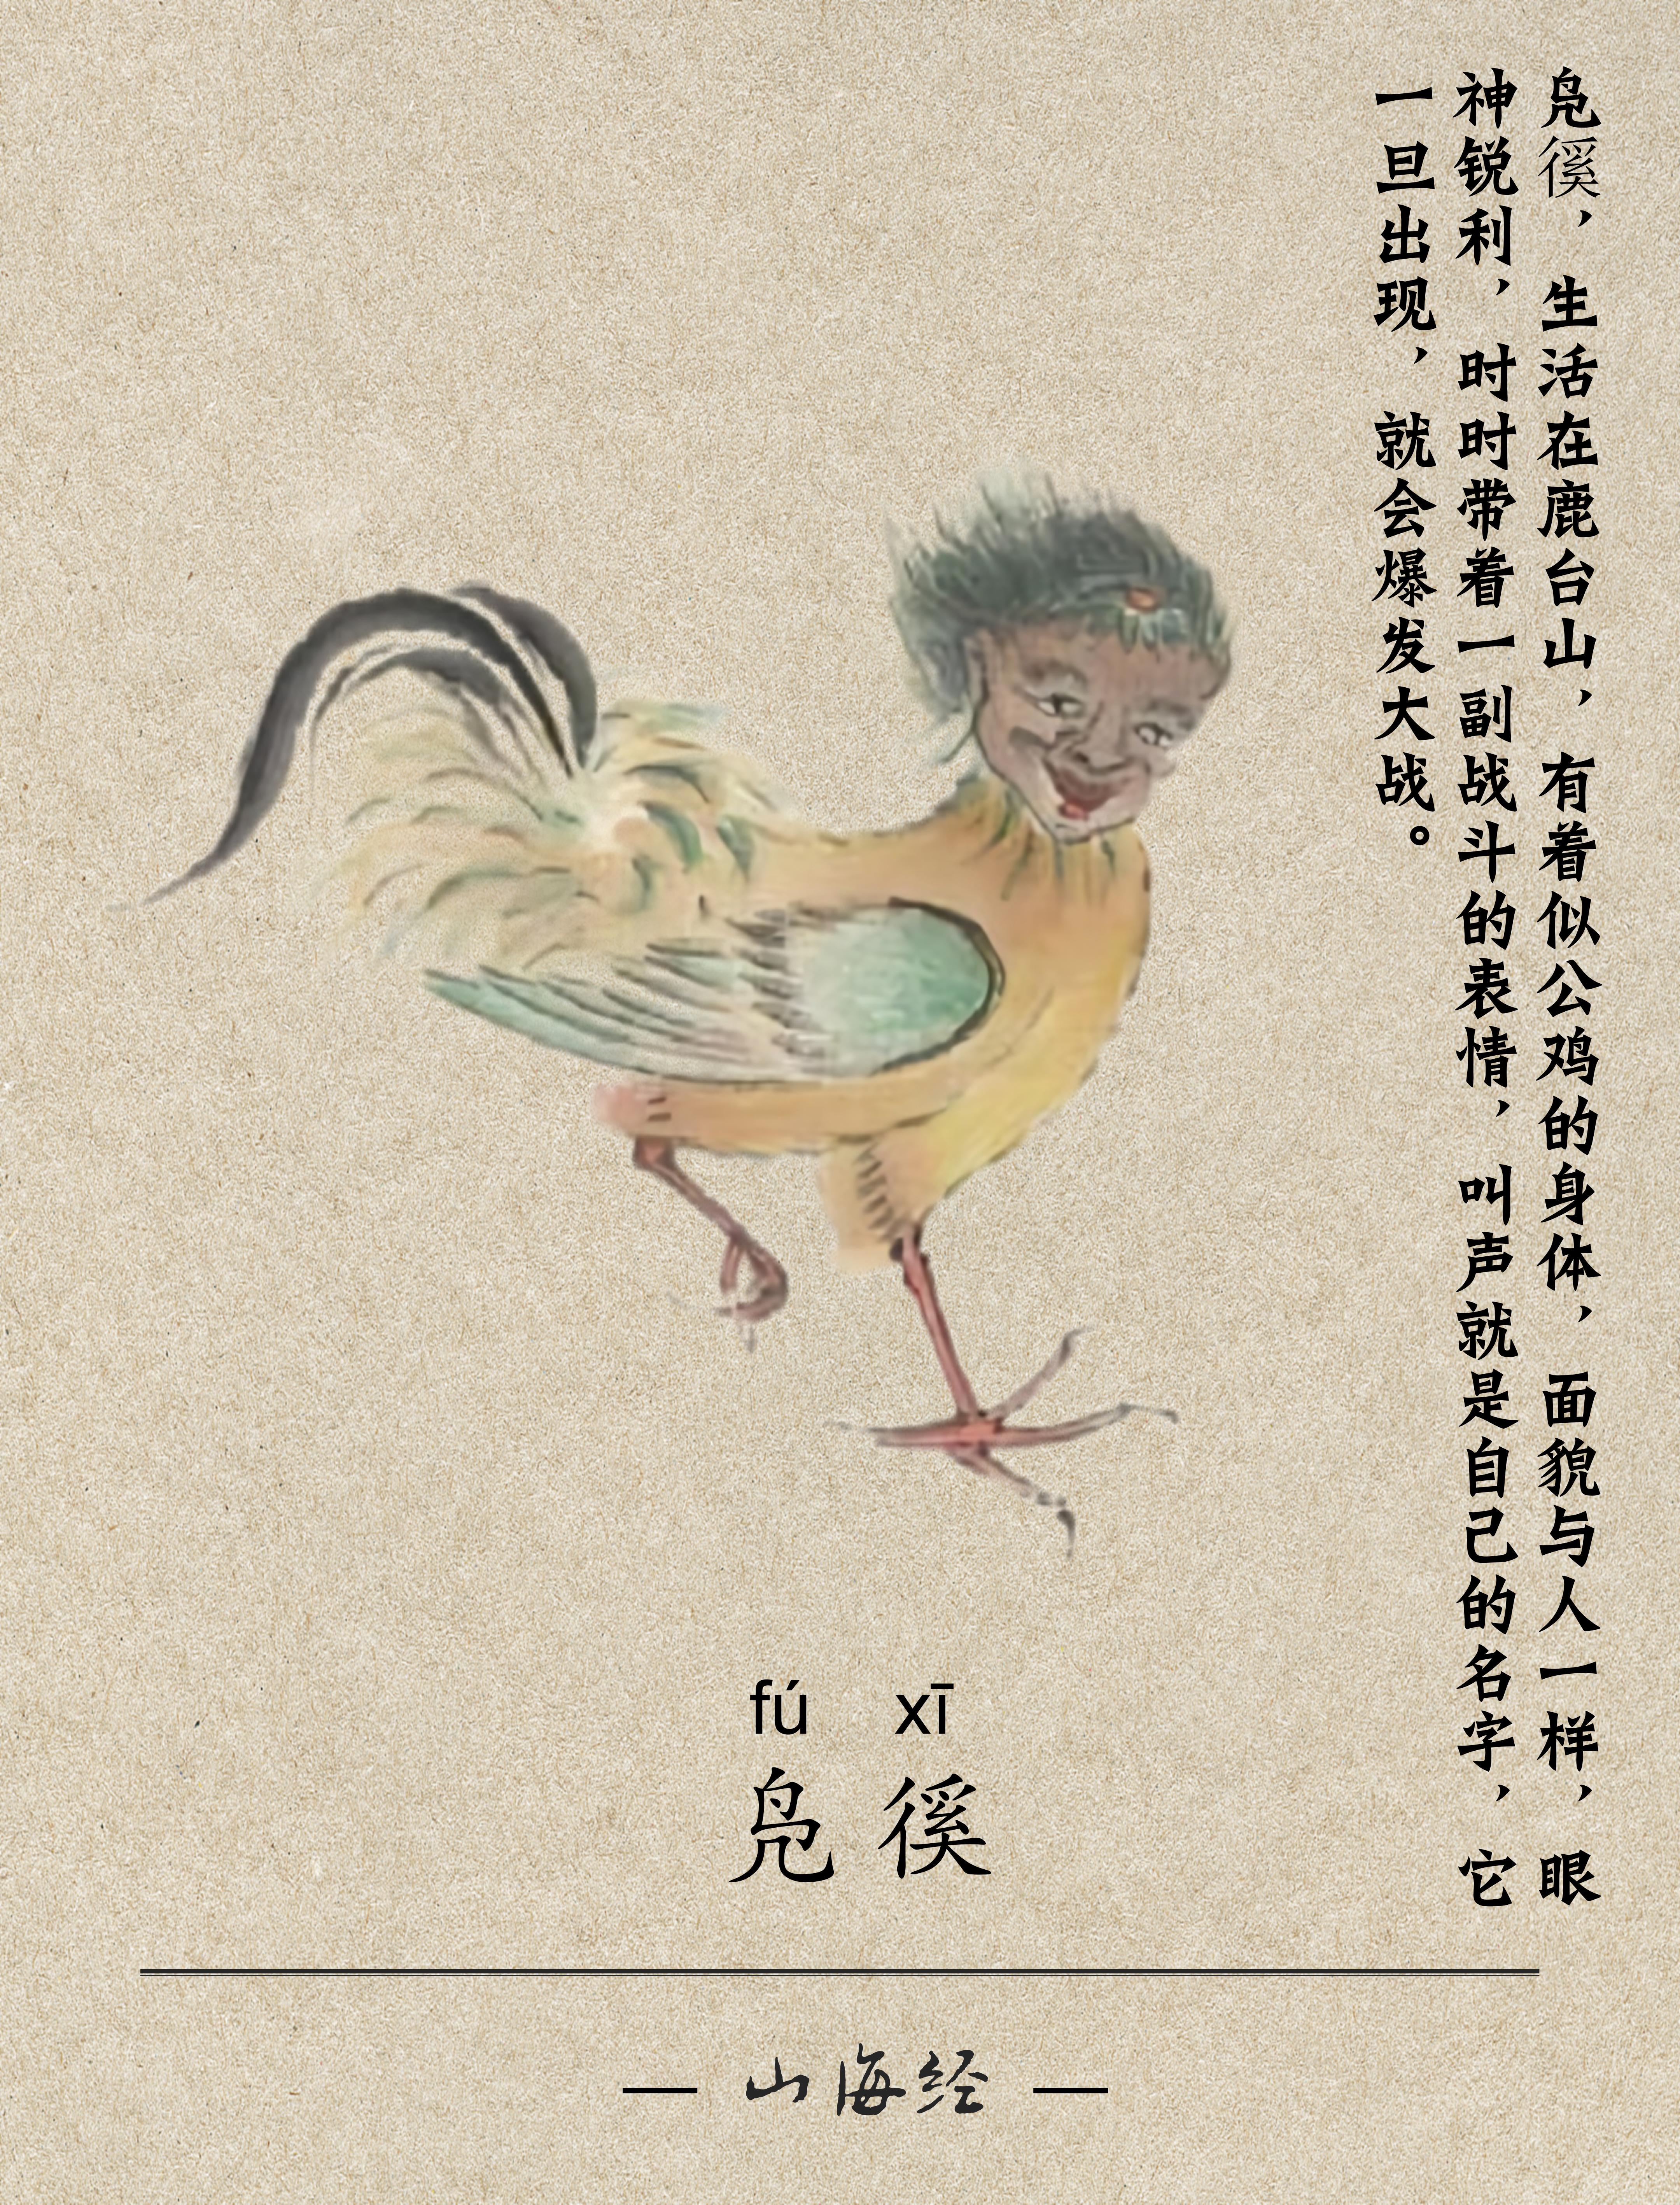 凫徯，生活在鹿台山，有着似公鸡的身体，面貌与人一样，眼
神锐利，时时带着一副战斗的表情，叫声就是自己的名字，它
一旦出现，就会爆发大战。
fú xī
凫徯
— 山海经 —